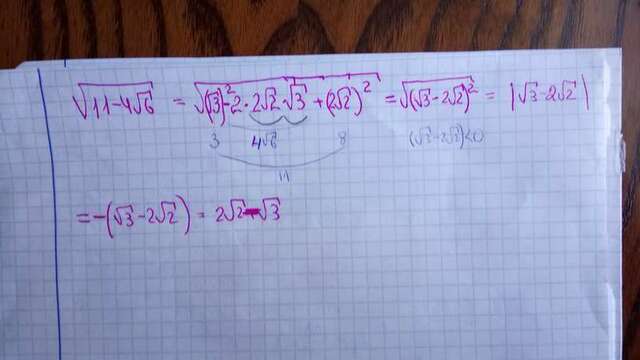 √(11-4√6) = √((√3)²-2·2√2·√3+(2√2)²) = √((√3-2√2)²) = |√3-2√2|
3 4√6 8 (√3-2√2)<0
11
= -(√3-2√2) = 2√2-√3